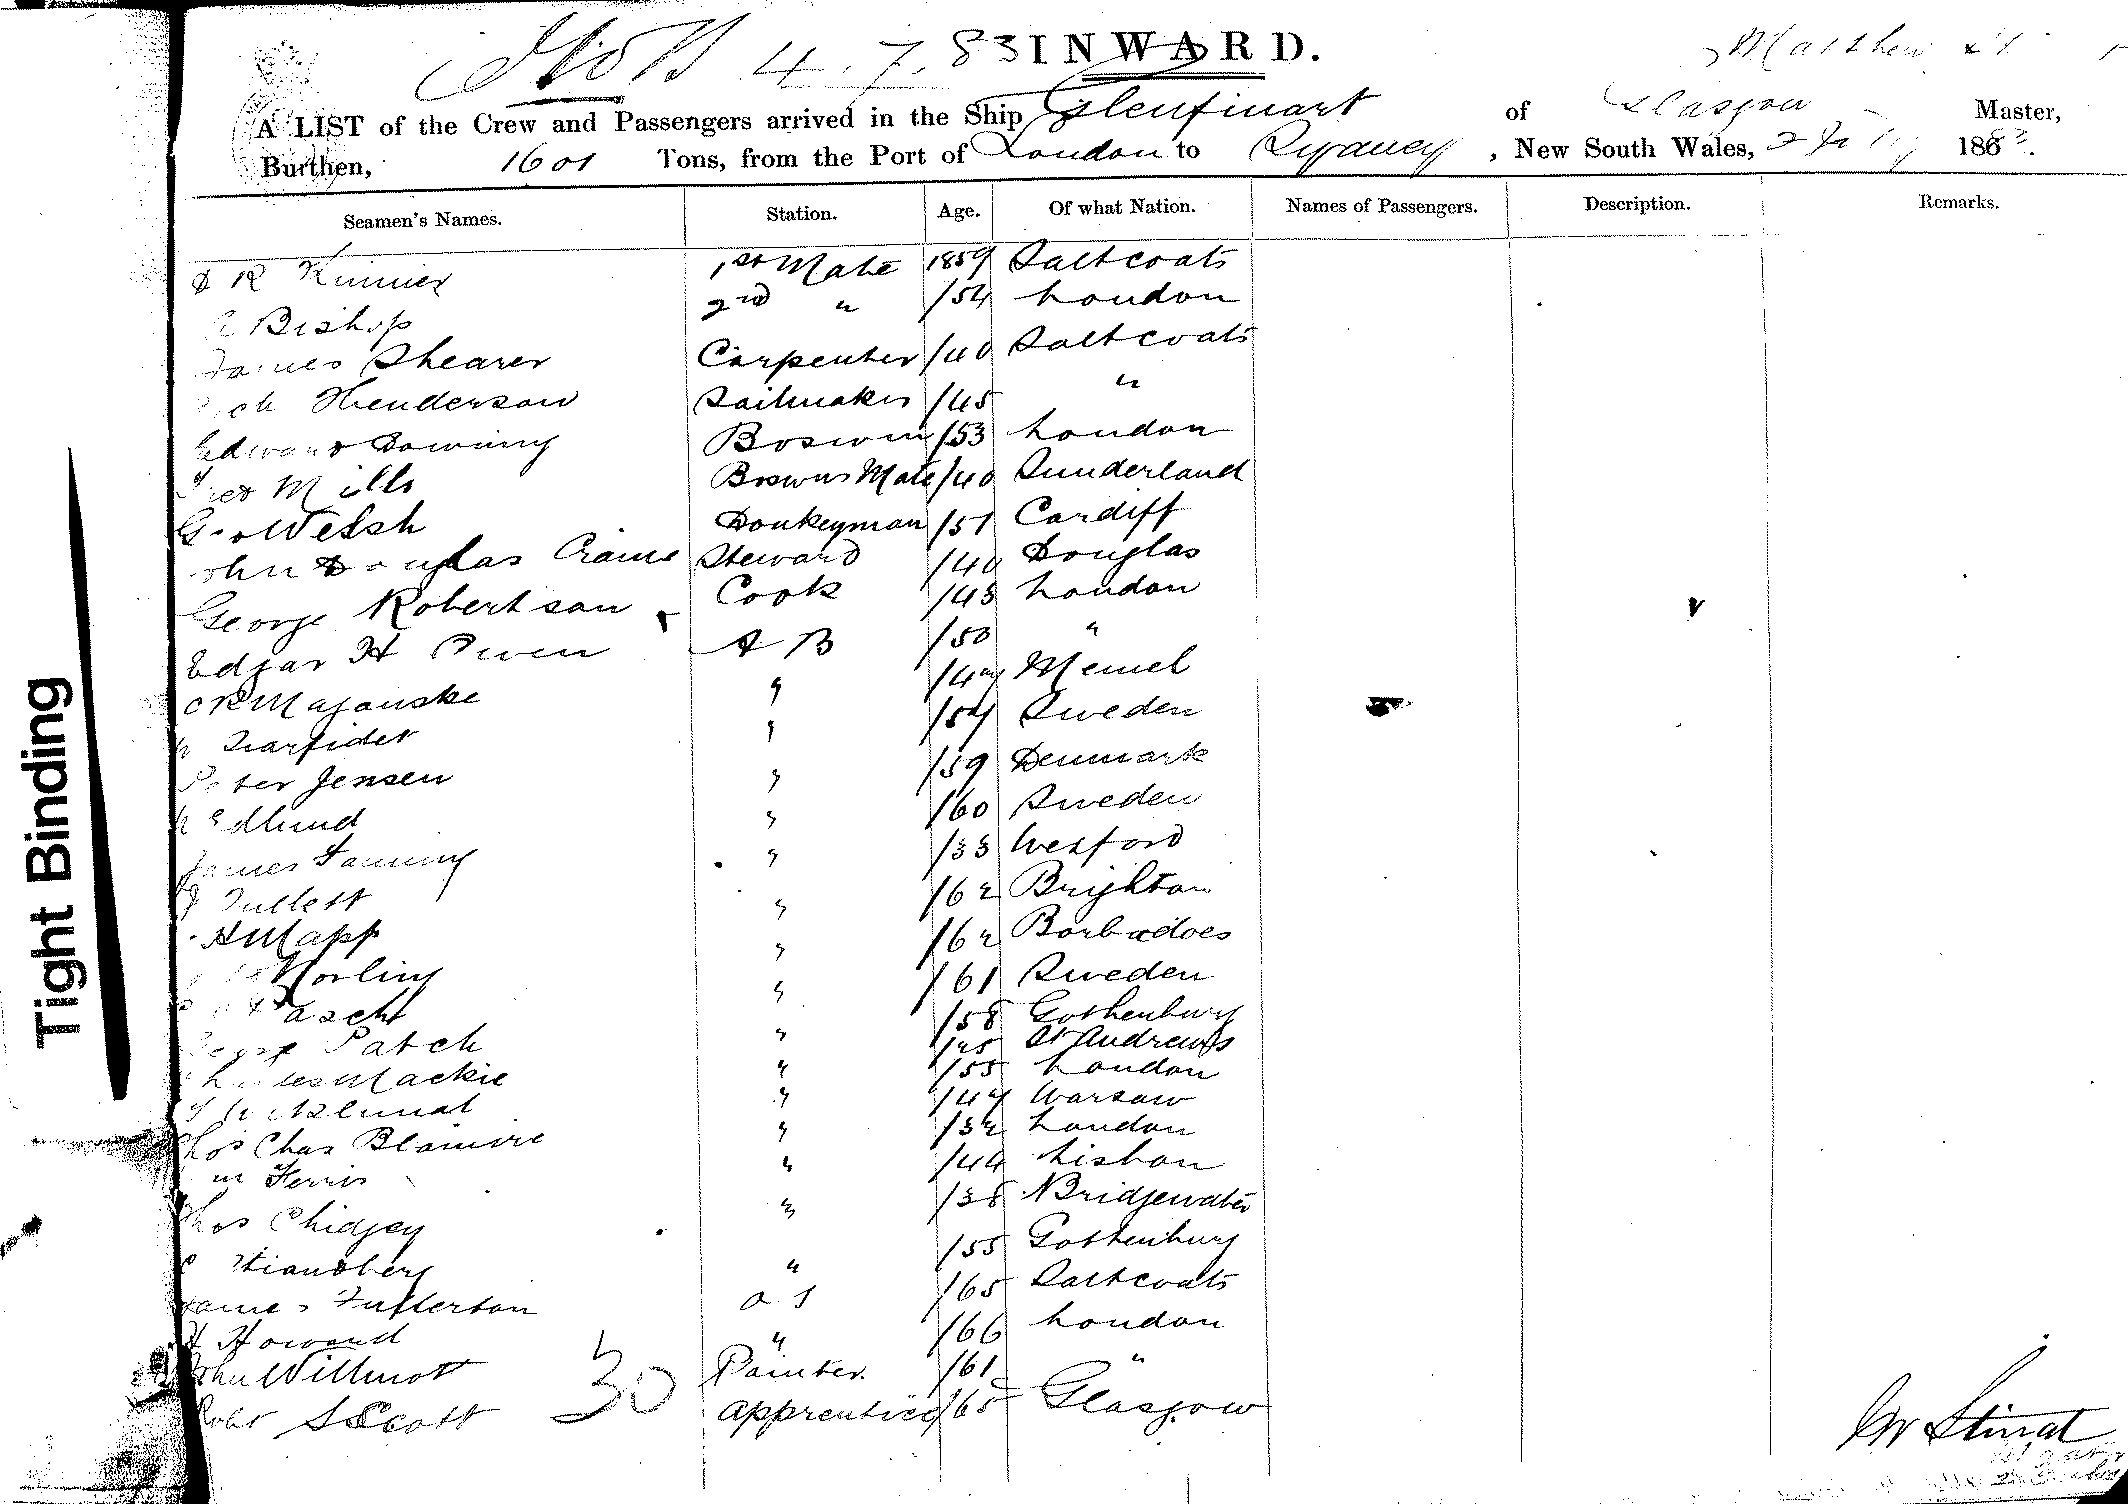 4.7.83 INWARD.
A LIST of the Crew and Passengers arrived in the Ship Glenfinart of Glasgow Master,
Burthen, 1601 Tons, from the Port of London to Sydney, New South Wales, 2 July 1883.
Seamen's Names. Station. Age. Of what Nation. Names of Passengers. Description. Remarks.
1st Mate 1859 Saltcoats
Bishop 2nd " /54 London
James Shearer Carpenter /40 Saltcoats
Henderson Sailmaker /45 "
Edward Downing Boswin /53 London
Mills Boswns Mate /40 Sunderland
Geo Welsh Donkeyman /51 Cardiff
John Douglas Craine Steward /40 Douglas
George Robertson Cook /48 London
Edgar H Owen A B /50 "
Majouske " /47 Memel
" /57 Sweden
Peter Jensen " /59 Denmark
Edlund " /60 Sweden
James Fanning " /33 Wexford
Tullett " /62 Brighton
Mapp " /62 Barbadoes
Norling " /61 Sweden
Pasch " /58 Gothenburg
George Patch " St Andrews
Charles Mackie " /55 London
" /47 Warsaw
Thos Chas Blamire " London
Ferris " /44 Lisbon
Thos Chidgey " /38 Bridgewater
" /55 Gottenburg
James Fullerton O S /65 Saltcoats
Howard " /66 London
John Willmott Painter /61 "
Robt Scott Apprentice /65 Glasgow
30
Tight Binding